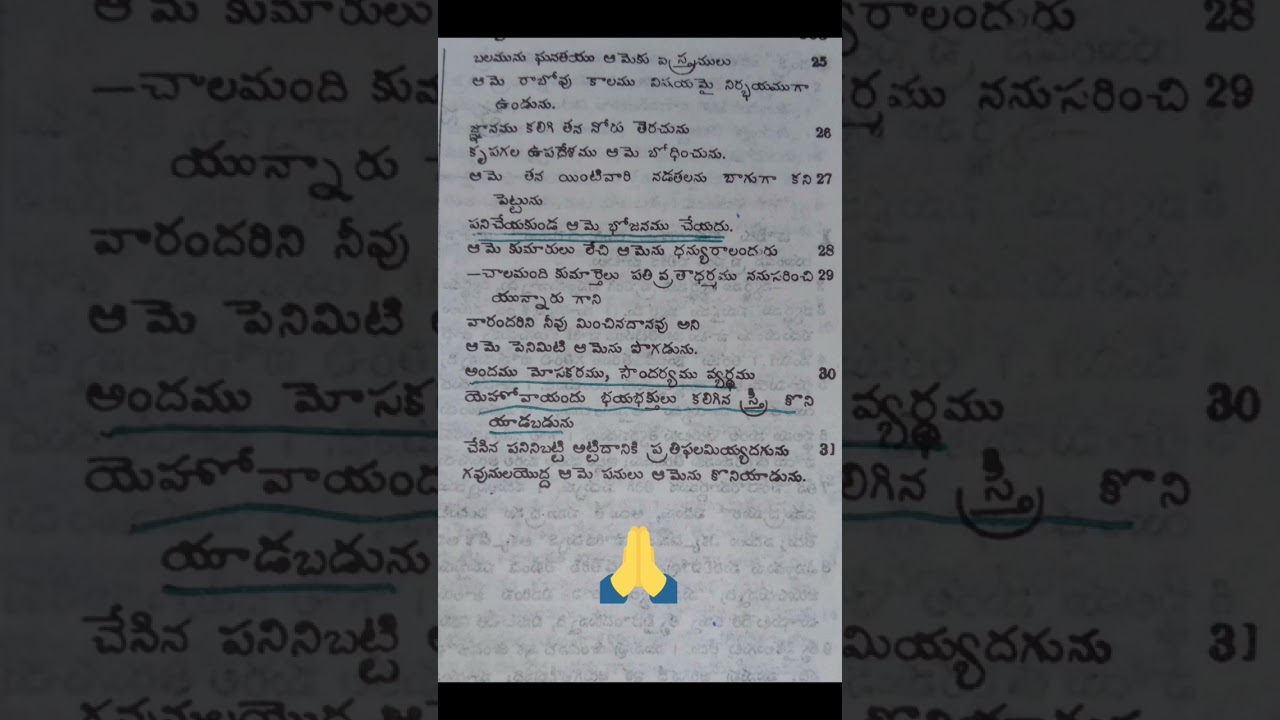 బలమును ఘనతయు ఆమెకు వస్త్రములు 25
ఆమె రాబోవు కాలము విషయమై నిర్భయముగా
ఉండును.
జ్ఞానము కలిగి తన నోరు తెరచును 26
కృపగల ఉపదేశము ఆమె బోధించును.
ఆమె తన యింటివారి నడతలను బాగుగా కని 27
పెట్టును
పనిచేయకుండ ఆమె భోజనము చేయదు.
ఆమె కుమారులు లేచి ఆమెను ధన్యురాలందురు 28
—చాలమంది కుమార్తెలు పతివ్రతాధర్మము ననుసరించి 29
యున్నారు గాని
వారందరిని నీవు మించినదానవు అని
ఆమె పెనిమిటి ఆమెను పొగడును.
అందము మోసకరము, సౌందర్యము వ్యర్థము 30
యెహోవాయందు భయభక్తులు కలిగిన స్త్రీ కొని
యాడబడును
చేసిన పనినిబట్టి అట్టిదానికి ప్రతిఫలమియ్యదగును 31
గవునులయొద్ద ఆమె పనులు ఆమెను కొనియాడును.